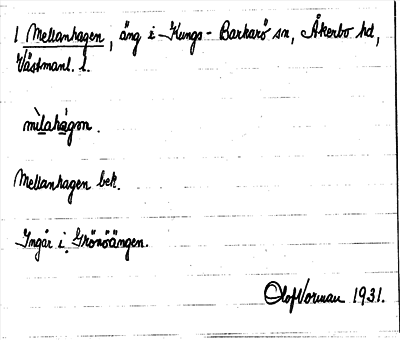 1 Mellanhagen, äng i Kungs-Barkarö sn, Åkerbo hd,
Västmanl. l.
mìlahágɷn.
Mellanhagen bek.
Ingår i Grönöängen.
Olof Norman 1931.